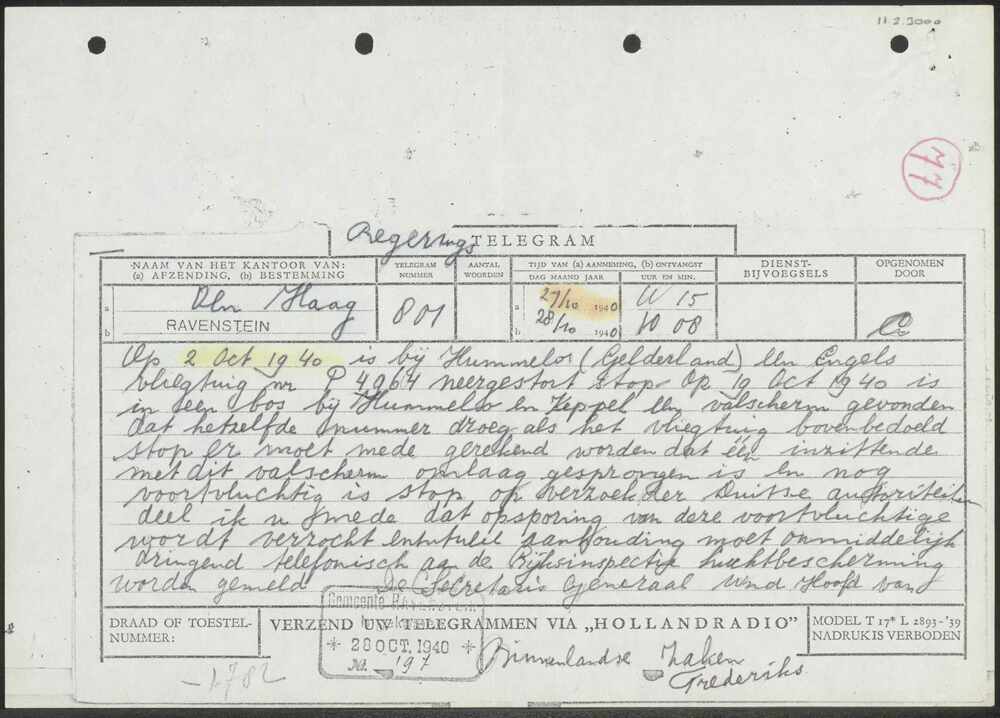 11.2.3000
77
Regerings TELEGRAM
NAAM VAN HET KANTOOR VAN:
(a) AFZENDING, (b) BESTEMMING
TELEGRAM
NUMMER
AANTAL
WOORDEN
TIJD VAN (a) AANNEMING, (b) ONTVANGST
DAG MAAND JAAR
UUR EN MIN.
DIENST-
BIJVOEGSELS
OPGENOMEN
DOOR
a Den Haag
b RAVENSTEIN
801
a 27/10 1940 15
b 28/10 1940 10 08
Op 2 Oct 1940 is bij Hummelo (Gelderland) een Engels
vliegtuig nr P 4964 neergestort stop Op 19 Oct 1940 is
in een bos bij Hummelo en Keppel een valscherm gevonden
dat hetzelfde nummer droeg als het vliegtuig bovenbedoeld
stop er moet mede gerekend worden dat één inzittende
met dit valscherm omlaag gesprongen is en nog
voortvluchtig is stop op verzoek der Duitse autoriteiten
deel ik u mede dat opsporing van deze voortvluchtige
wordt verzocht eventueel aanhouding moet onmiddelijk
dringend telefonisch aan de Rijksinspectie luchtbescherming
worden gemeld De Secretaris Generaal Wnd Hoofd van
Binnenlandse Zaken
Frederiks
Gemeente RAVENSTEIN
28 OCT. 1940
No. 197
DRAAD OF TOESTEL-
NUMMER:
VERZEND UW TELEGRAMMEN VIA „HOLLANDRADIO”
MODEL T 17* L 2893-'39
NADRUK IS VERBODEN